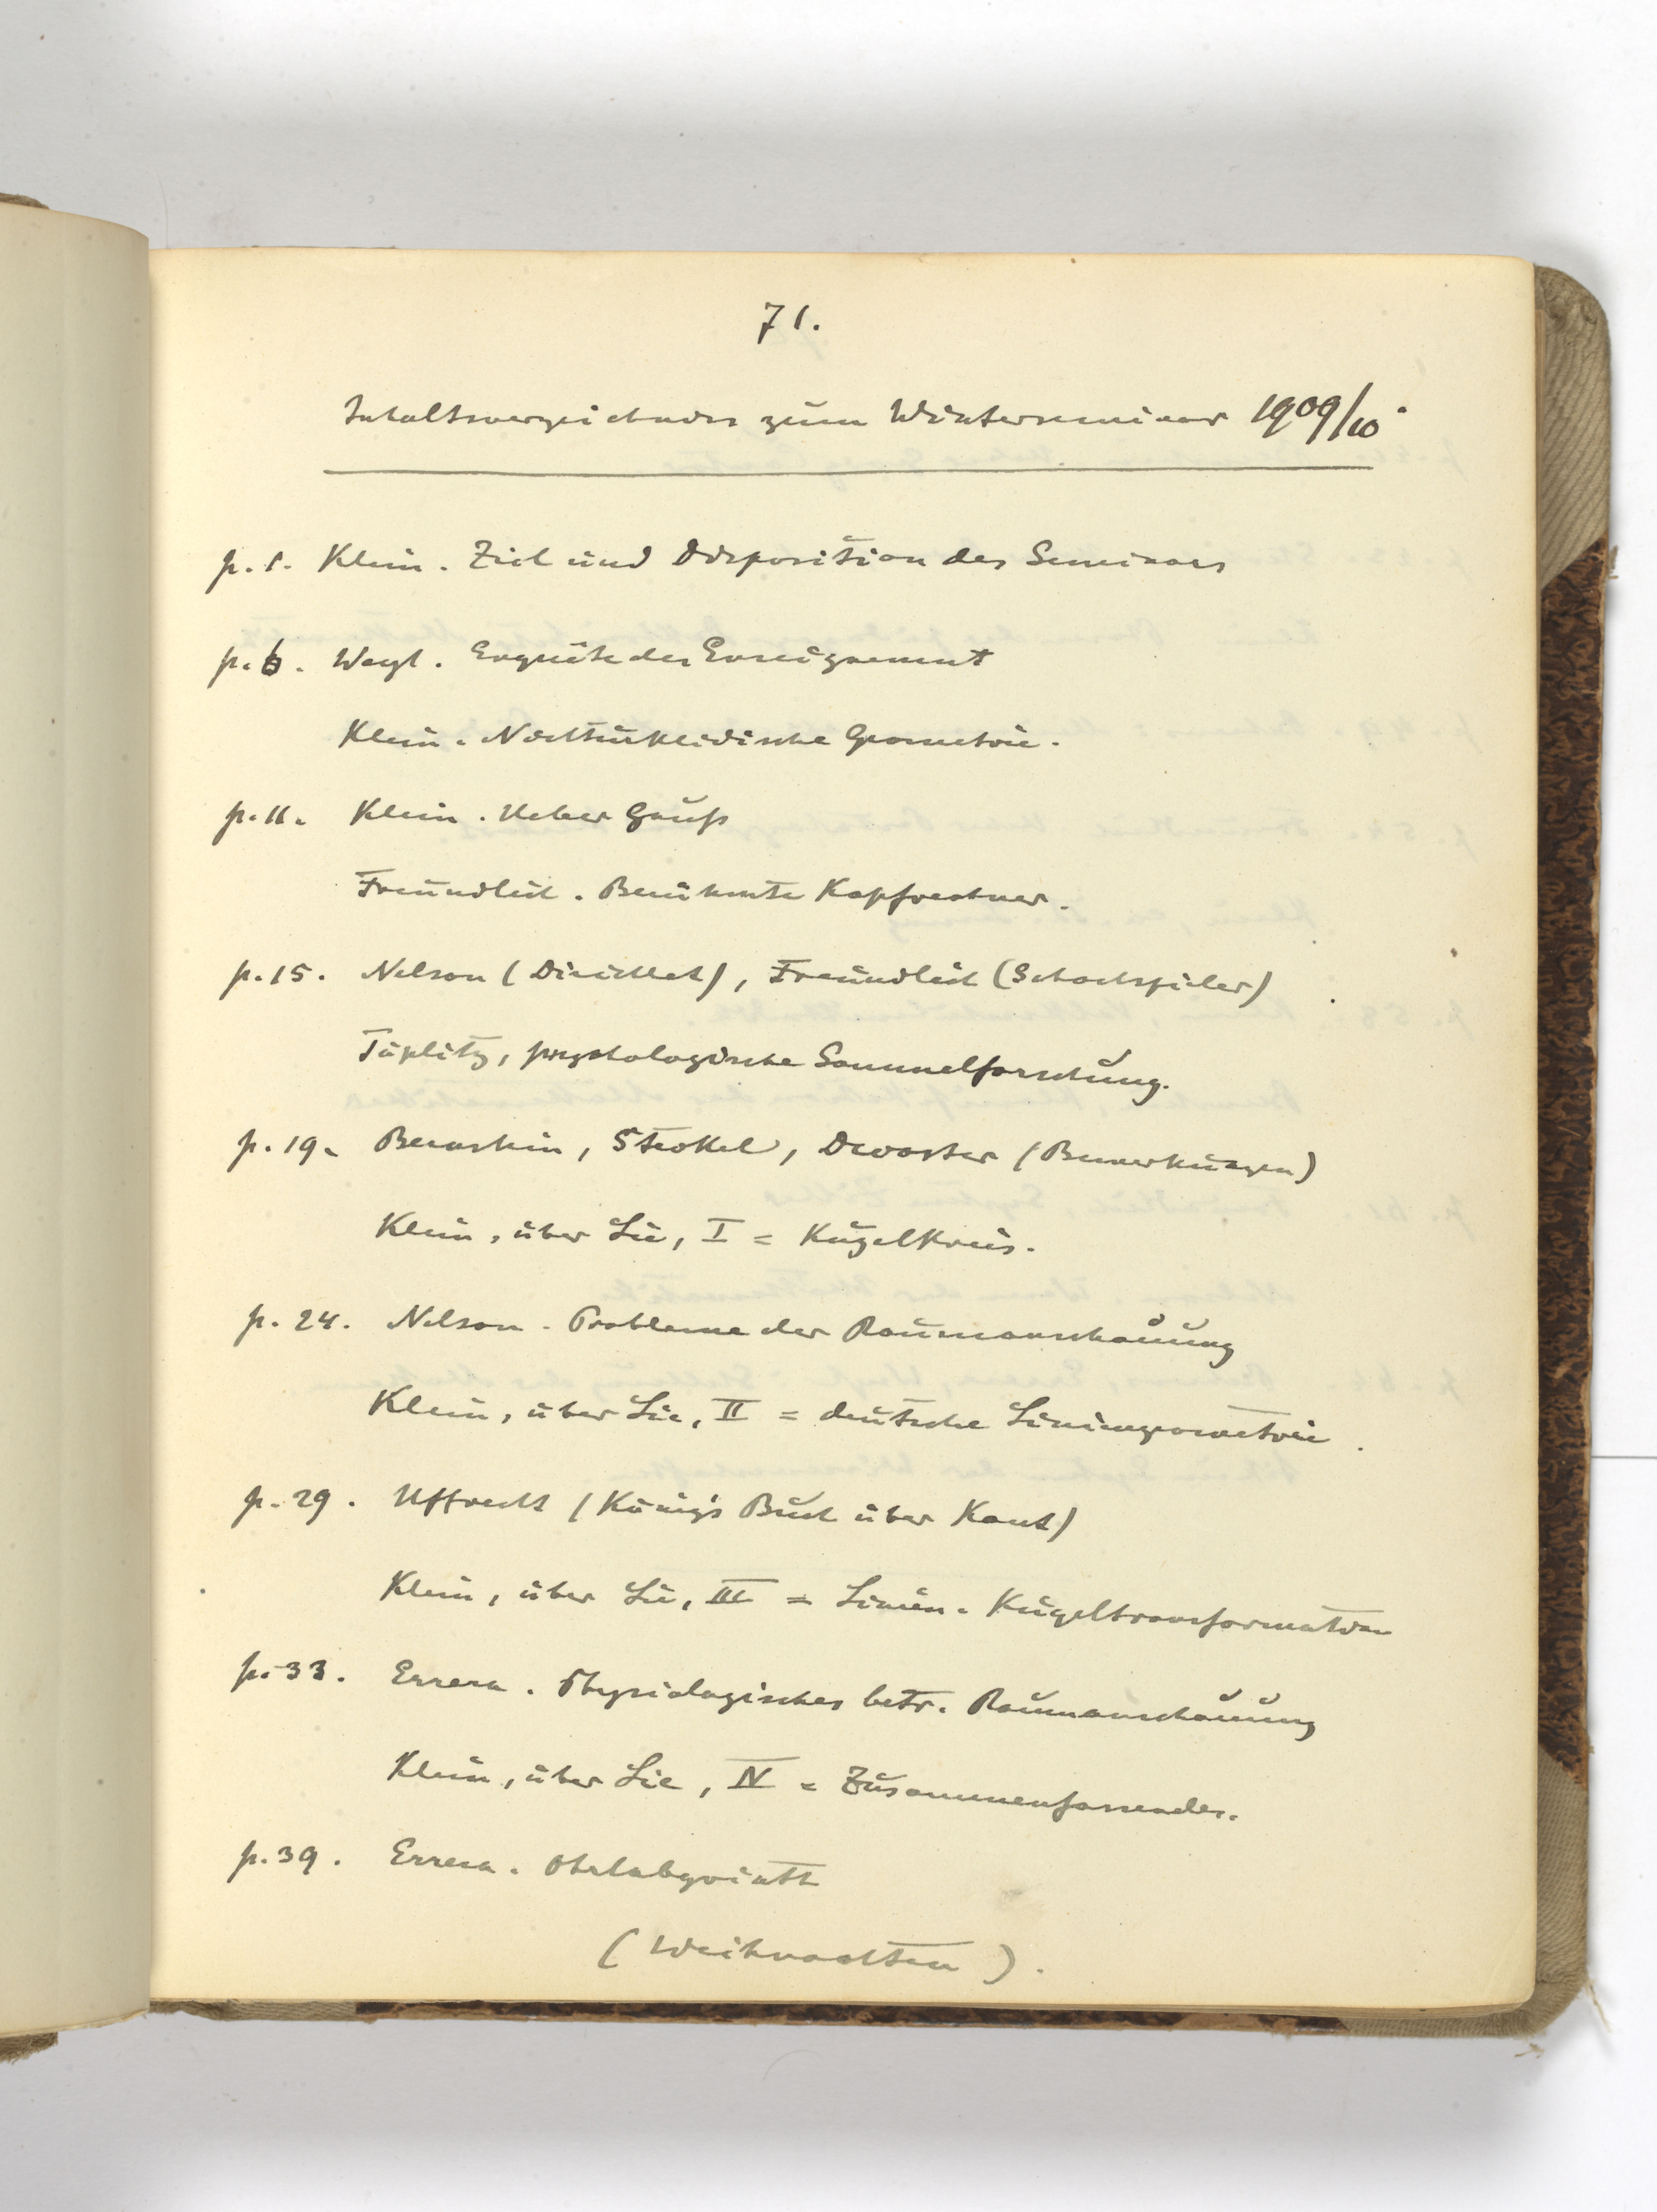 71.
Inhaltsverzeichnis zum Winterseminar 1909/10.
p. 1. Klein. Ziel und Disposition des Seminars
p. 6. Weyl. Enquête des Enseignement
Klein. Nichteuklidische Geometrie.
p. 11. Klein. Ueber Gauß
Freundlich. Berühmte Kopfrechner.
p. 15. Nelson (Dirichlet), Freundlich (Schachspieler)
Töplitz, psychologische Sammelforschung.
p. 19. Bernstein, Steckel, (Bemerkungen)
Klein, über Lie, I = Kugelkreis.
p. 24. Nelson. Probleme der Raumanschauung
Klein, über Lie, II = deutsche Liniengeometrie.
p. 29. Uffrecht (König's Buch über Kant)
Klein, über Lie, III = Linien-Kugeltransformation
p. 33. Errera. Physiologisches betr. Raumanschauung
Klein, über Lie, IV = Zusammenfassendes.
p. 39. Errera. Ohrlabyrinth
(Weihnachten).